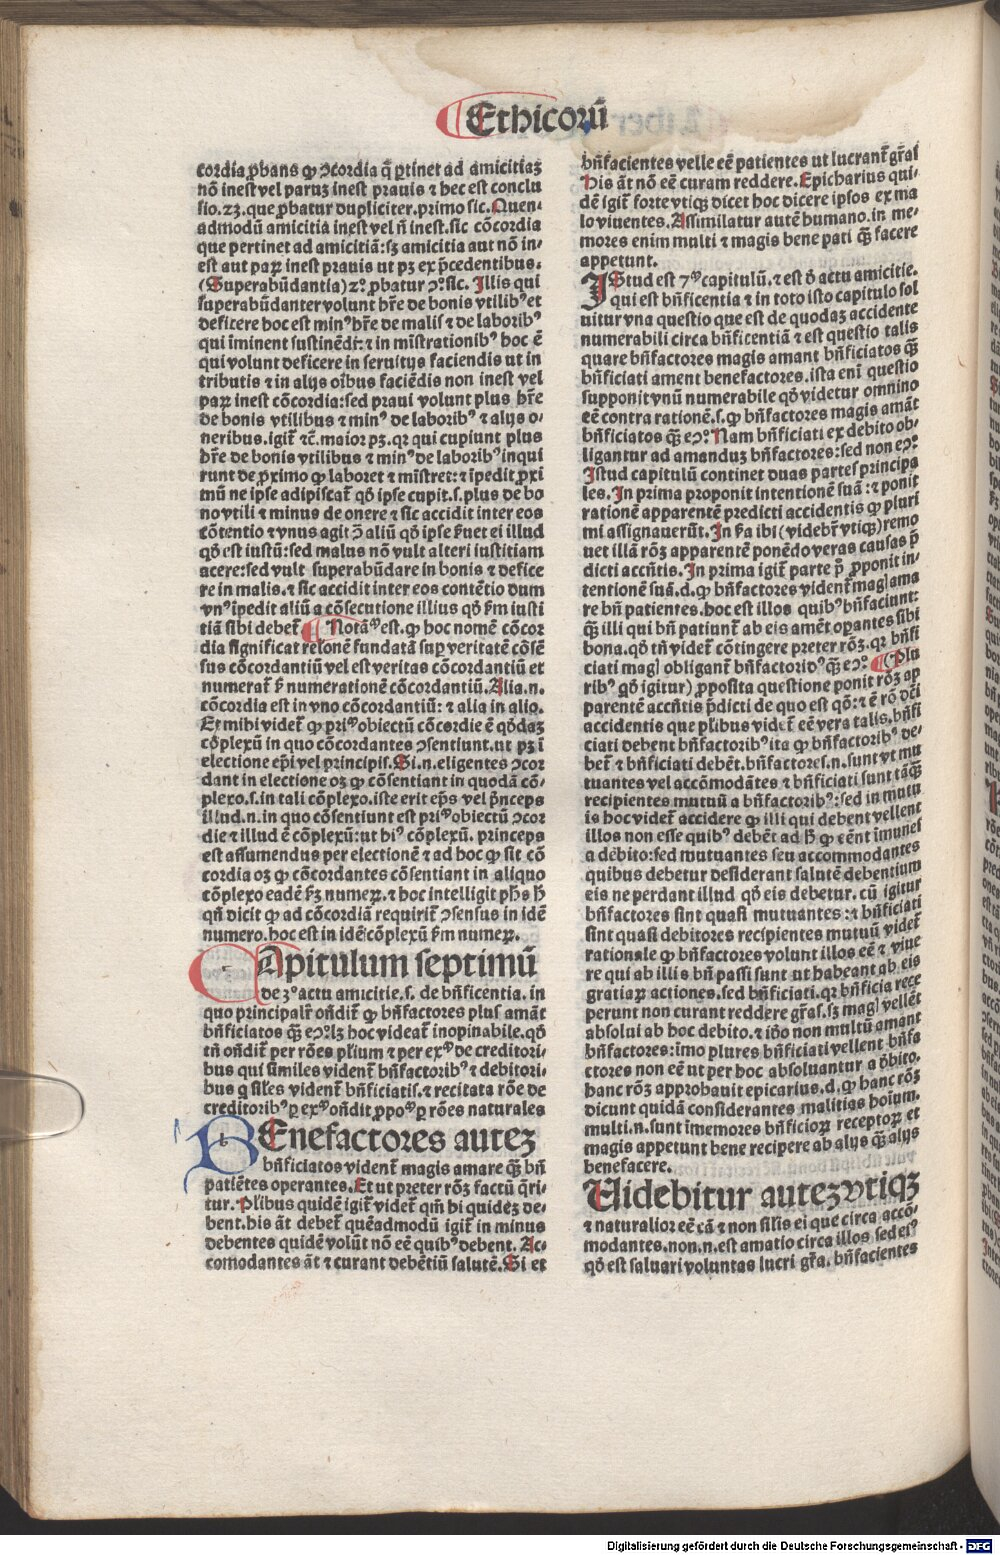 Ethicorū
cordia ꝓbans ꝙ ↄcordia q̄ ꝑtinet ad amicitiaꝫ
nō inest vel paruꝫ inest prauis ⁊ hec est conclu
sio.23.que ꝓbatur dupliciter.primo sic.Quen⸗
admodū amicitia inest vel n̄ inest.sic cōcordia
que pertinet ad amicitiā:sꝫ amicitia aut nō in⸗
est aut paꝝ inest prauis ut pꝫ ex p̄cedentibus.
(Superabūdantia)2ͦ.ꝓbatur ↄͦ.sic.Illis qui
superabūdanter volunt hr̄e de bonis vtilibꝰ et
deficere hoc est minꝰ hr̄e de malis ⁊ de laboribꝰ
qui īminent sustinēdi:⁊ in mīstrationibꝰ hoc ē
qui volunt deficere in seruitijs faciendis ut in
tributis ⁊ in alijs oībus faciēdis non inest vel
paꝝ inest cōcordia:sed praui volunt plus hr̄e
de bonis vtilibus ⁊ minꝰ de laboribꝰ ⁊ alijs o⸗
neribus.igit̄ ⁊c̄.maior pꝫ.qꝛ qui cupiunt plus
hr̄e de bonis vtilibus ⁊ minꝰ de laboribꝰ inqui
runt de ꝓximo ꝙ laboret ⁊ mīstret:⁊ īpedit ꝓxi
mū ne ipse adipiscat̄ qd̄ ipse cupit.s.plus de bo
no vtili ⁊ minus de onere ⁊ sic accidit inter eos
cōtentio ⁊ vnus agit ↄ̄ aliū qd̄ ipse s̄uet ei illud
qd̄ est iustū:sed malus nō vult alteri iustitiam
acere:sed vult superabūdare in bonis ⁊ defice
re in malis.⁊ sic accidit inter eos contētio dum
vnꝰ īpedit aliū a cōsecutione illius qd̄ ẜm iusti
tiā sibi debet̄. Notāᵐ est.ꝙ hoc nomē cōcor
dia significat rel̄onē fundatā suꝑ veritatē cōsē
sus cōcordantiū vel est veritas cōcordantiū et
numerat̄ ẜ numerationē cōcordantiū.Alia.n.
cōcordia est in vno cōcordantiū:⁊ alia in alio.
Et mihi videt̄ ꝙ priᵐ obiectū cōcordie ē qd̄daꝫ
cōplexū in quo cōcordantes ↄsentiunt.ut pꝫ ī
electione ep̄i vel principis.Si.n.eligentes ↄcor
dant in electione oꝫ ꝙ cōsentiant in quodā cō⸗
plexo.s.in tali cōplexo.iste erit ep̄s vel p̄nceps
illud.n.in quo cōsentiunt est priᵐ obiectū ↄcor
die ⁊ illud ē cōplexū:ut hiꝰ cōplexū.princeps
est assumendus per electionē ⁊ ad hoc ꝙ sit cō
cordia oꝫ ꝙ cōcordantes cōsentiant in aliquo
cōplexo eadē ẜꝫ numeꝝ.⁊ hoc intelligit ph̄s h̄
qn̄ dicit ꝙ ad cōcordiā requirit̄ ↄsensus in idē
numero.hoc est in idē cōplexū ẜm numeꝝ.
CApitulum septimū
de 3ͦ actu amicitie.s. de bn̄ficentia. in
quo principalr̄ on̄dit̄ ꝙ bn̄factores plus amāt
bn̄ficiatos qꝫ̄ eↄͦ:lꝫ hoc videat̄ inopinabile.qd̄
tn̄ on̄dit̄ per rōes plīum ⁊ per exᵐ de creditori⸗
bus qui similes vident̄ bn̄factoribꝰ ⁊ debitori⸗
bus q siles vident̄ bn̄ficiatis.⁊ recitata rōe de
creditoribꝰ ꝑ exᵐ on̄dit ꝓpoᵐ ꝑ rōes naturales
BEnefactores auteꝫ
bn̄ficiatos vident̄ magis amare qꝫ̄ bn̄
patiētes operantes.Et ut preter rōꝫ factū q̄ri⸗
tur. Plībus quidē igit̄ videt̄ qm̄ hi quideꝫ de⸗
bent.his āt debet̄ quēadmodū igit̄ in minus
debentes quidē volūt nō eē quibꝰ debent. Ac⸗
comodantes āt ⁊ curant debētiū salutē.Si et
bn̄facientes velle eē patientes ut lucrant̄ gr̄as
his āt nō eē curam reddere.Epicharius qui⸗
dē igit̄ forte vtiqꝫ dicet hoc dicere ipsos ex ma
lo viuentes.Assimilatur autē humano.in me⸗
mores enim multi ⁊ magis bene pati qꝫ̄ facere
appetunt.
IStud est 7ᵐ capitulū.⁊ est d̄ actu amicitie.
qui est bn̄ficentia ⁊ in toto isto capitulo sol
uitur vna questio que est de quodaꝫ accidente
numerabili circa bn̄ficentiā ⁊ est questio talis
quare bn̄factores magis amant bn̄ficiatos qꝫ̄
bn̄ficiati ament benefactores.ista enī questio
supponit vnū numerabile qd̄ videtur omnino
eē contra rationē.s.ꝙ bn̄factores magis amāt
bn̄ficiatos qꝫ̄ eↄͦ.Nam bn̄ficiati ex debito ob⸗
ligantur ad amanduꝫ bn̄factores:sed non eↄͦ.
Istud capitulū continet duas partes principa
les.In prima proponit intentionē suā:⁊ ponit
rationē apparentē predicti accidentis ꝙ pluri
mi assignauerūt.In ẜa ibi(videbr̄ vtiqꝫ)remo
uet illā rōꝫ apparentē ponēdo veras causas p̄
dicti accn̄tis.In prima igit̄ parte p̄ ꝓponit in⸗
tentionē suā.d.ꝙ bn̄factores vident̄ magl ama
re bn̄ patientes.hoc est illos quibꝰ bn̄faciunt:
qꝫ̄ illi qui bn̄ patiunt̄ ab eis amēt oꝑantes sibi
bona.qd̄ tn̄ videt̄ cōtingere preter rōꝫ.qꝛ bn̄fi
ciati magl obligant̄ bn̄factoribꝰ qꝫ̄ eↄͦ. (Plu
ribꝰ qd̄ igitur)ꝓposita questione ponit rōꝫ ap
parentē accn̄tis p̄dicti de quo est qō:⁊ ē rō dc̄i
accidentis que plībus videt̄ eē vera talis.bn̄fi
ciati debent bn̄factoribꝰ ita ꝙ bn̄factoribꝰ de⸗
bet̄ ⁊ bn̄ficiati debēt.bn̄factores.n.sunt vt mu
tuantes vel accōmodātes ⁊ bn̄ficiati sunt tāqꝫ̄
recipientes mutuū a bn̄factoribꝰ:sed in mutu
is hoc videt̄ accidere ꝙ illi qui debent vellent
illos non esse quibꝰ debēt ad h̄ ꝙ eēnt īmunes
a debito:sed mutuantes seu accommodantes
quibus debetur desiderant salutē debentium
eis ne perdant illud qd̄ eis debetur. cū igitur
bn̄factores sint quasi mutuantes:⁊ bn̄ficiati
sint quasi debitores recipientes mutuū videt̄
rationale ꝙ bn̄factores volunt illos eē ⁊ viue
re qui ab illis bn̄ passi sunt ut habeant ab eis
gratiaꝝ actiones.sed bn̄ficiati.qꝛ bn̄ficia rece
perunt non curant reddere gr̄as.sꝫ magl vellēt
absolui ab hoc debito.⁊ iō nō multū amant
bn̄factores:īmo plures bn̄ficiati vellent bn̄fa
ctores non eē ut per hoc absoluantur a d̄bito.
hanc rōꝫ approbauit epicarius.d.ꝙ hanc rōꝫ
dicunt quidā considerantes malitias hoīum.
multi.n.sunt īmemores bn̄ficioꝝ receptoꝝ et
magis appetunt bene recipere ab alijs qꝫ̄ alijs
benefacere.
Videbitur auteꝫ vtiqꝫ
⁊ naturalioꝛ eē cā ⁊ non silis ei que circa accō⸗
modantes.non.n.est amatio circa illos sed eiꝰ
qd̄ est saluari voluntas lucri gr̄a. bn̄facientes
Digitalisierung gefördert durch die Deutsche Forschungsgemeinschaft - DFG